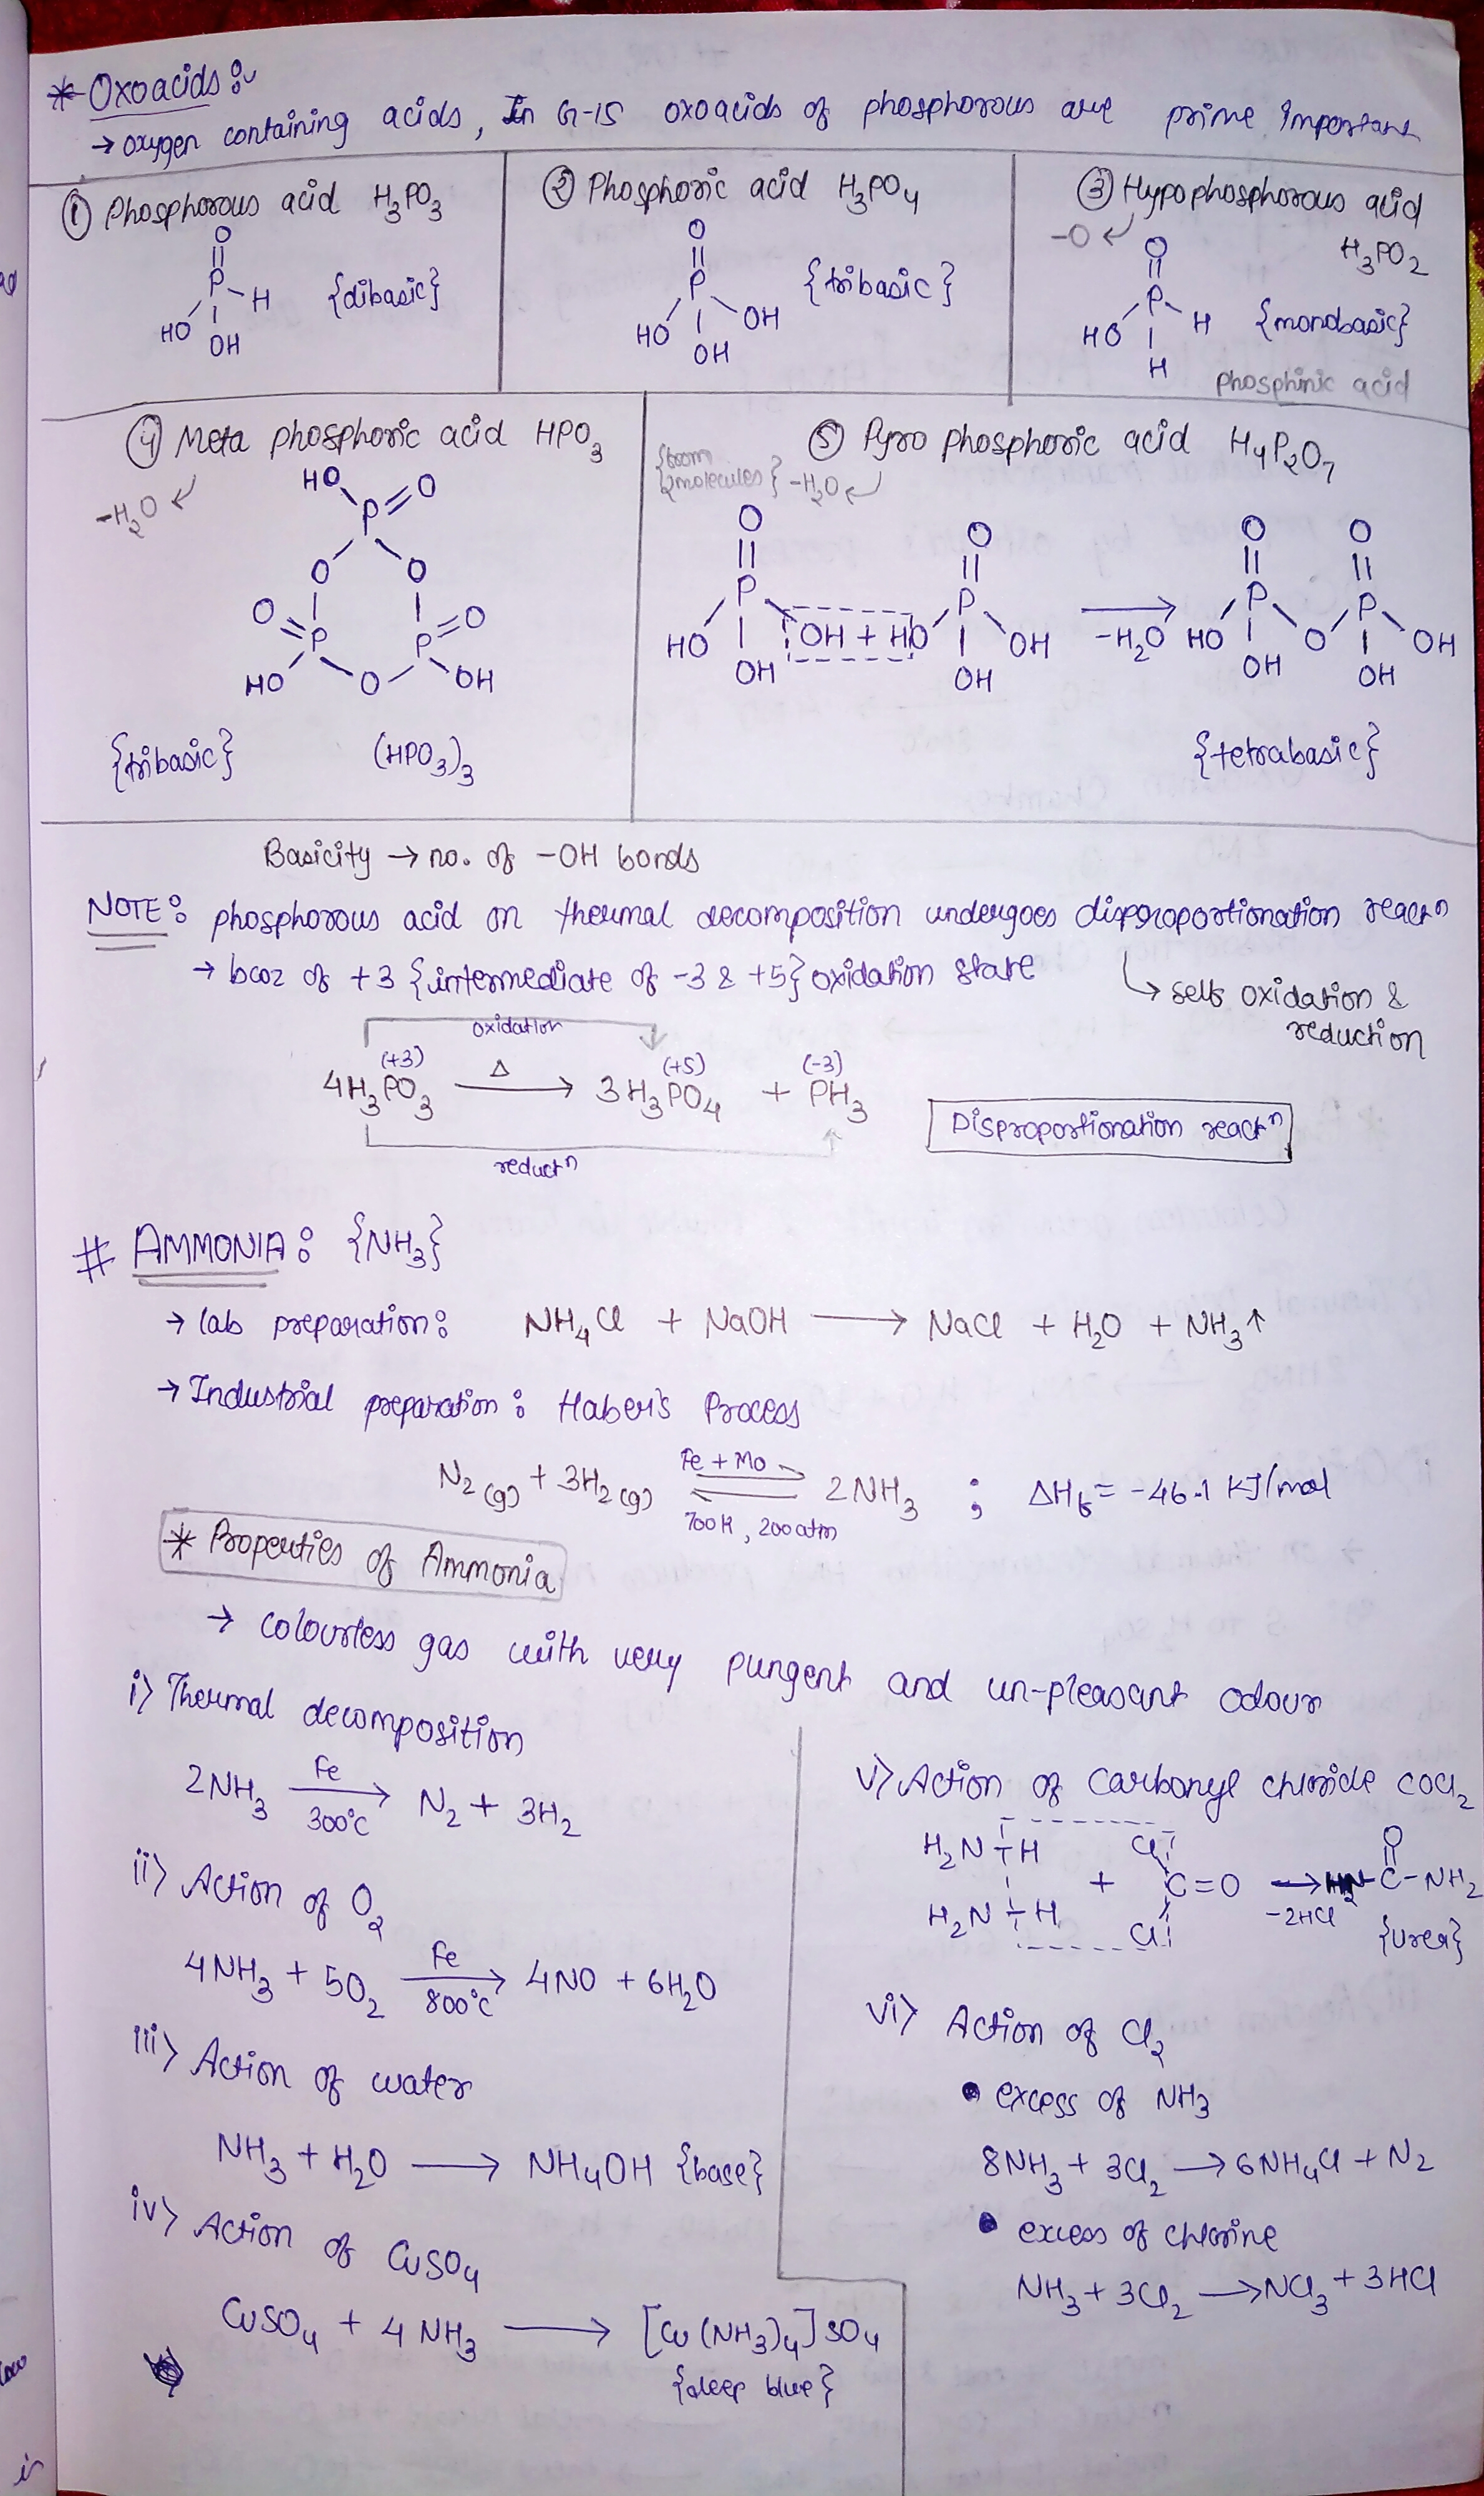 * Oxoacids :-
→ oxygen containing acids, In G-15 oxoacids of phosphorous are prime important
① Phosphorous acid H₃PO₃
O
||
P
H
HO
OH
{dibasic}
② Phosphoric acid H₃PO₄
O
||
P
HO
OH
OH
{tribasic}
③ Hypophosphorous acid
-O ↙
H₃PO₂
O
||
P
HO
H
H
{monobasic}
phosphinic acid
④ Meta phosphoric acid HPO₃
-H₂O ↙
HO P=O
O O
O=P P=O
HO O OH
{tribasic} (HPO₃)₃
⑤ Pyro phosphoric acid H₄P₂O₇
{from
2molecules} -H₂O ↙
O O O O
|| || || ||
P P P P
HO OH + HO OH → -H₂O HO O OH
OH OH OH OH
{tetrabasic}
Basicity → no. of -OH bonds
NOTE : phosphorous acid on thermal decomposition undergoes disproportionation reactⁿ
→ bcoz of +3 {intermediate of -3 & +5} oxidation state
↳ self oxidation &
reduction
oxidation
(+3) (+5) (-3)
4H₃PO₃ —Δ→ 3H₃PO₄ + PH₃
reductⁿ
Disproportionation reactⁿ
# AMMONIA : {NH₃}
→ lab preparation : NH₄Cl + NaOH → NaCl + H₂O + NH₃↑
→ Industrial preparation : Haber's Process
Fe + Mo
N₂(g) + 3H₂(g) ⇌ 2NH₃ ; ΔHf = -46.1 KJ/mol
700K, 200atm
* Properties of Ammonia
→ colourless gas with very pungent and un-pleasant odour
i) Thermal decomposition
Fe
2NH₃ → N₂ + 3H₂
300°C
ii) Action of O₂
Fe
4NH₃ + 5O₂ → 4NO + 6H₂O
800°C
iii) Action of water
NH₃ + H₂O → NH₄OH {base}
iv) Action of CuSO₄
CuSO₄ + 4 NH₃ → [Cu(NH₃)₄]SO₄
{deep blue}
v) Action of carbonyl chloride COCl₂
O
||
H₂N-H Cl
+ C=O → H₂N-C-NH₂
H₂N-H Cl
-2HCl
{urea}
vi) Action of Cl₂
• excess of NH₃
8NH₃ + 3Cl₂ → 6NH₄Cl + N₂
• excess of chlorine
NH₃ + 3Cl₂ → NCl₃ + 3HCl